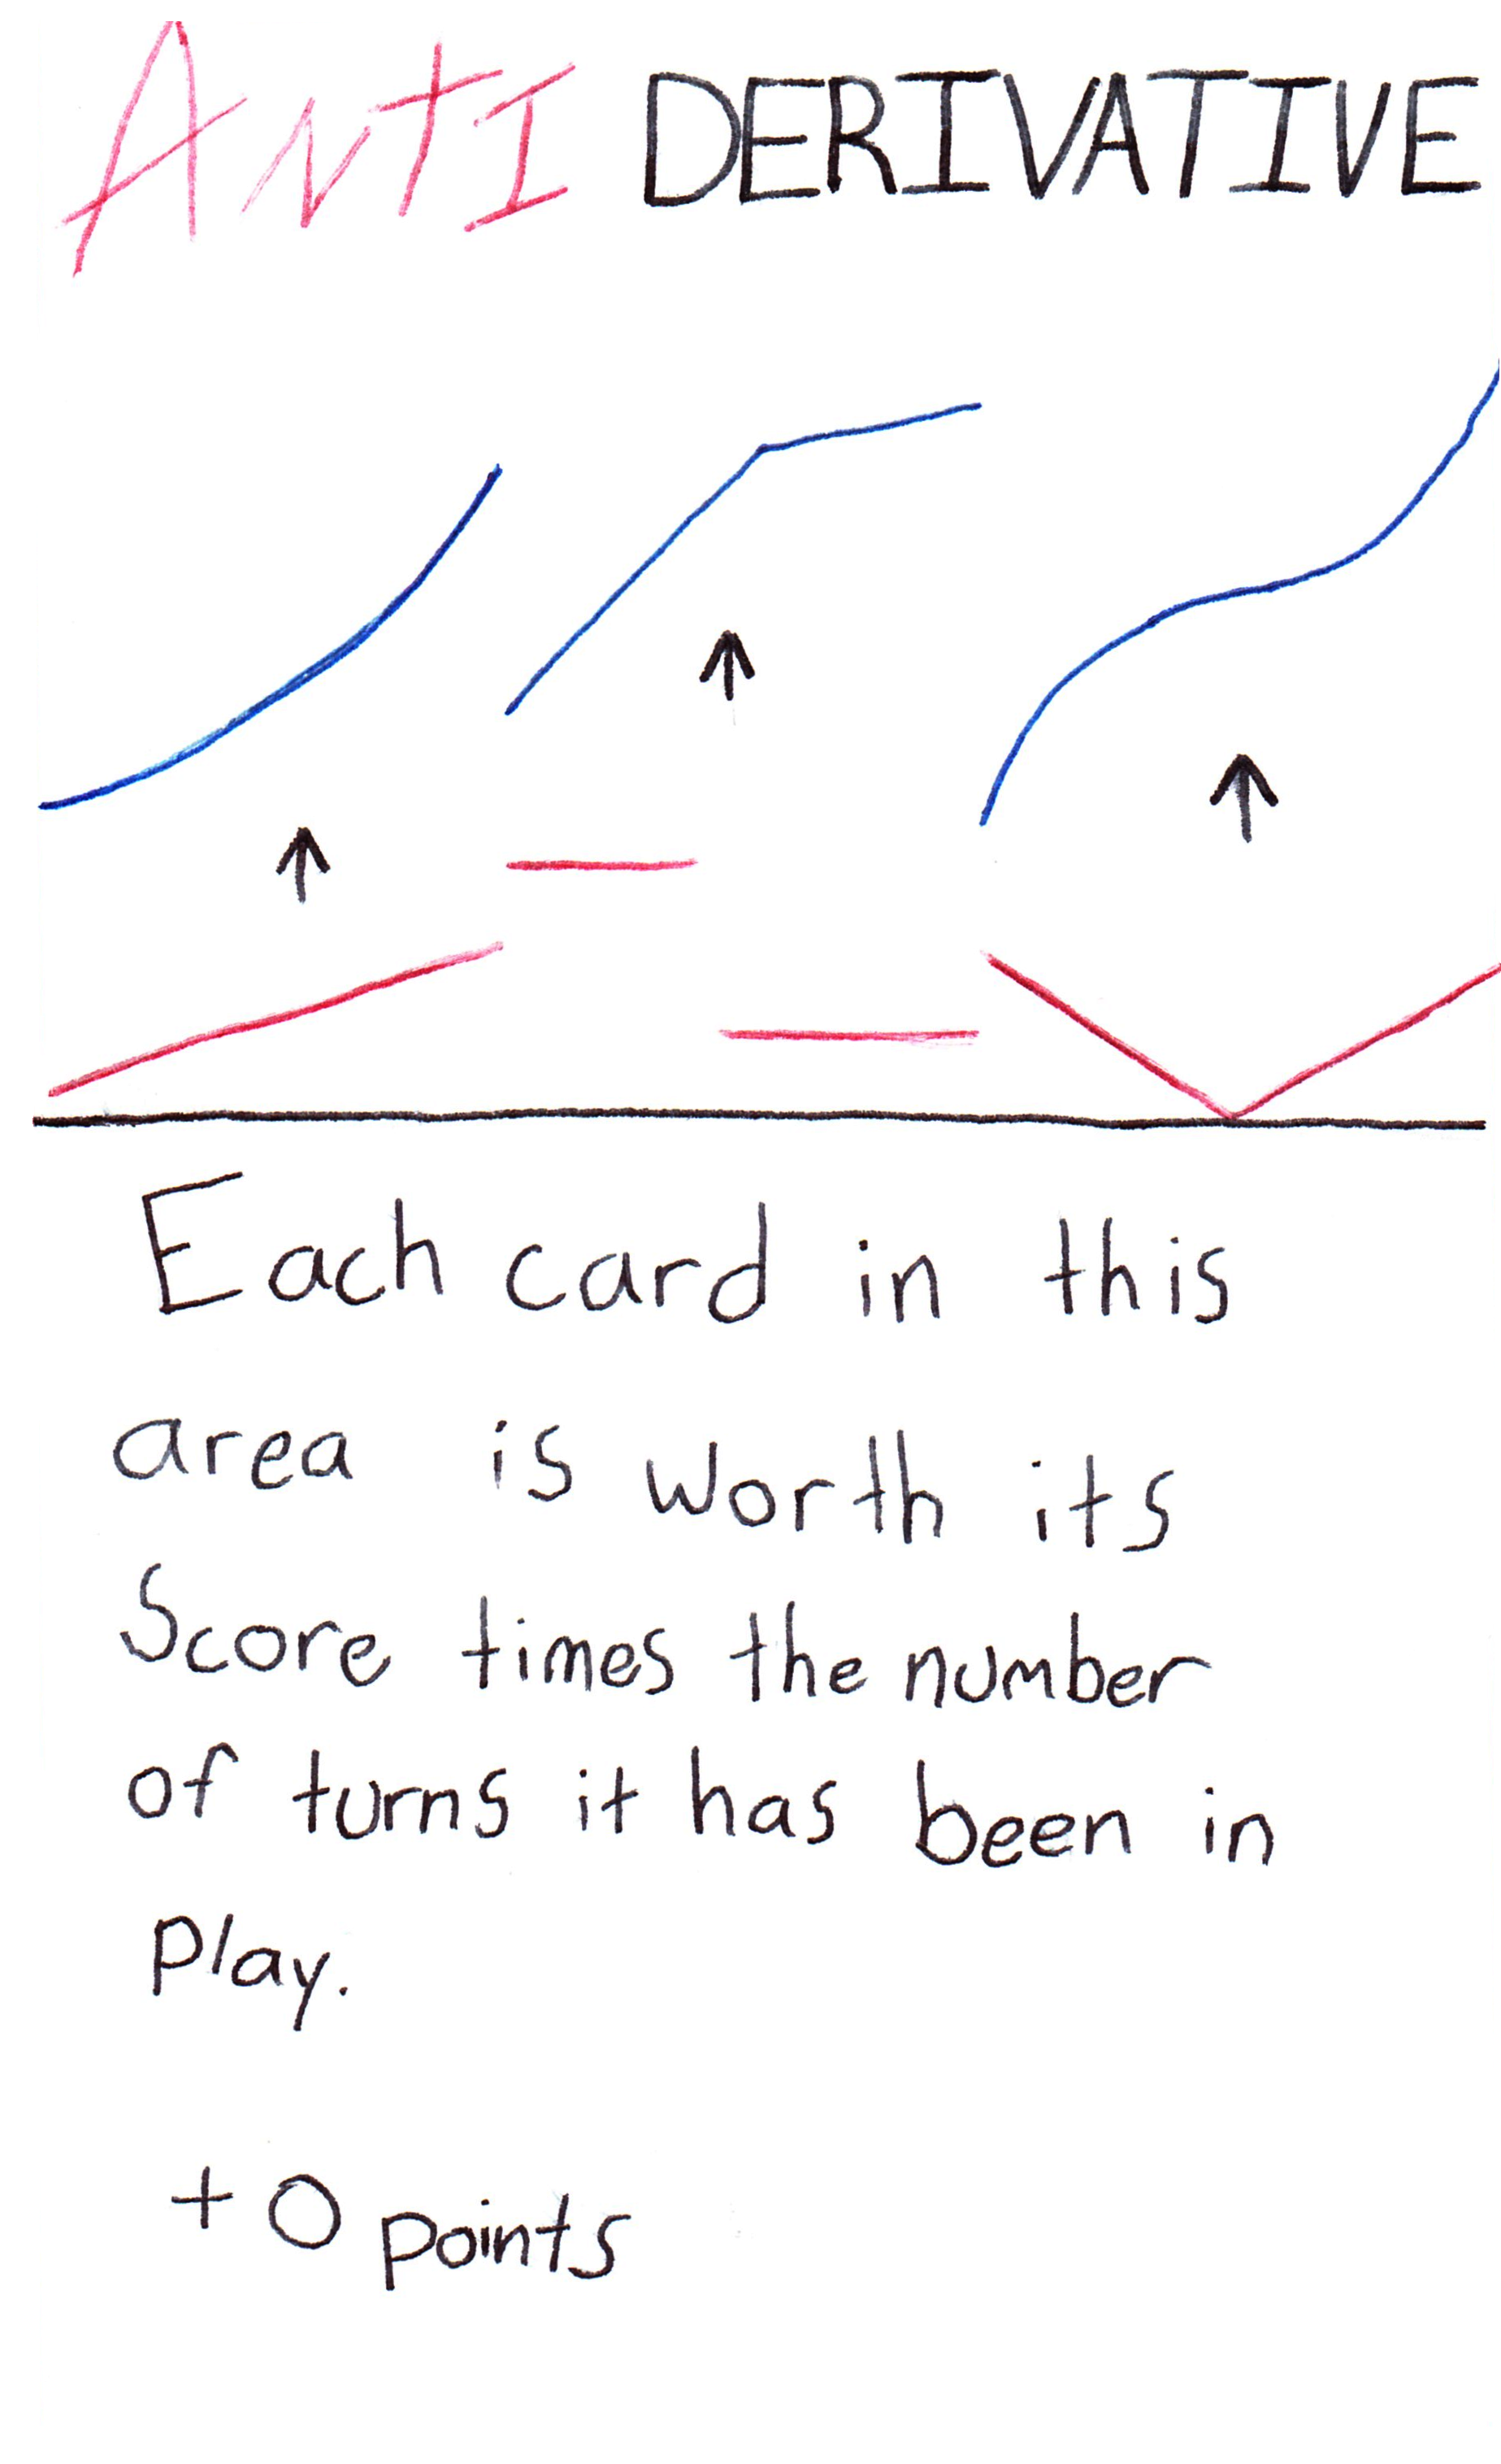 AntI DERIVATIVE
Each card in this
area is worth its
Score times the number
of turns it has been in
play.
+0 points